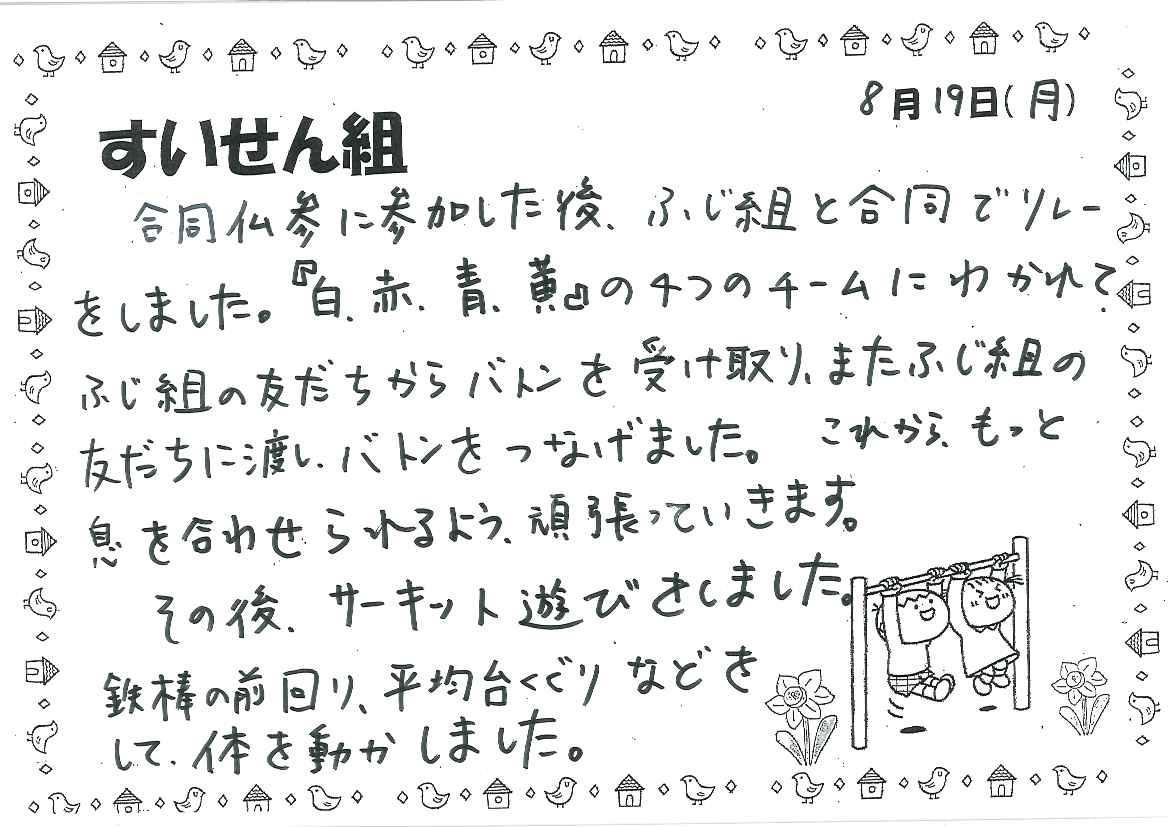 8月19日(月)
すいせん組
合同仏参に参加した後、ふじ組と合同でリレー
をしました。『白、赤、青、黄』の4つのチームにわかれて、
ふじ組の友だちからバトンを受け取り、またふじ組の
友だちに渡し、バトンをつなげました。これから、もっと
息を合わせられるよう、頑張っていきます。
その後、サーキット遊びをしました。
鉄棒の前回り、平均台くぐりなどを
して、体を動かしました。